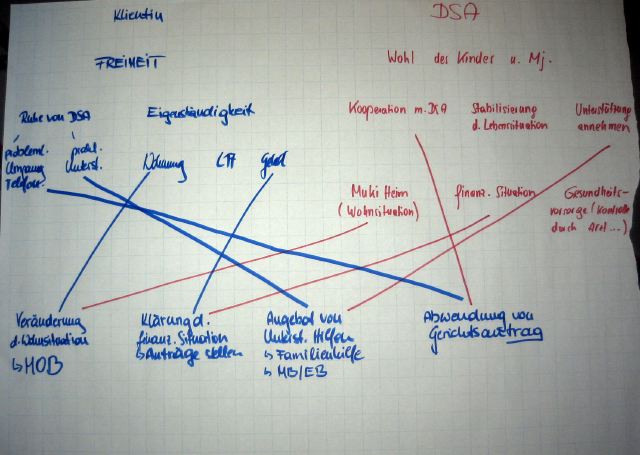 Klientin
DSA
FREIHEIT
Wohl des Kinder u. Mj.
Ruhe von DSA
Eigenständigkeit
Kooperation m. DSA
Stabilisierung
d. Lebenssituation
Unterstützung
annehmen
probleml.
Umgang
Telefon.
Unterst.
Wohnung
Geld
Muki Heim
(Wohnsituation)
finanz. Situation
Gesundheits-
vorsorge (Kontrolle
durch Arzt ...)
Veränderung
d. Wohnsituation
↳ MOB
Klärung d.
finanz. Situation
↳ Anträge stellen
Angebot von
Unterst. Hilfen
↳ Familienhilfe
↳ MB/EB
Abwendung von
Gerichtsauftrag